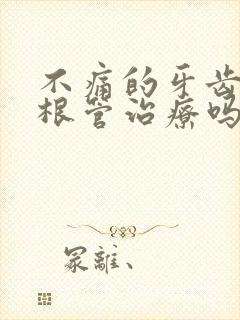 不痛的牙齿
根管治疗吗
冢離、